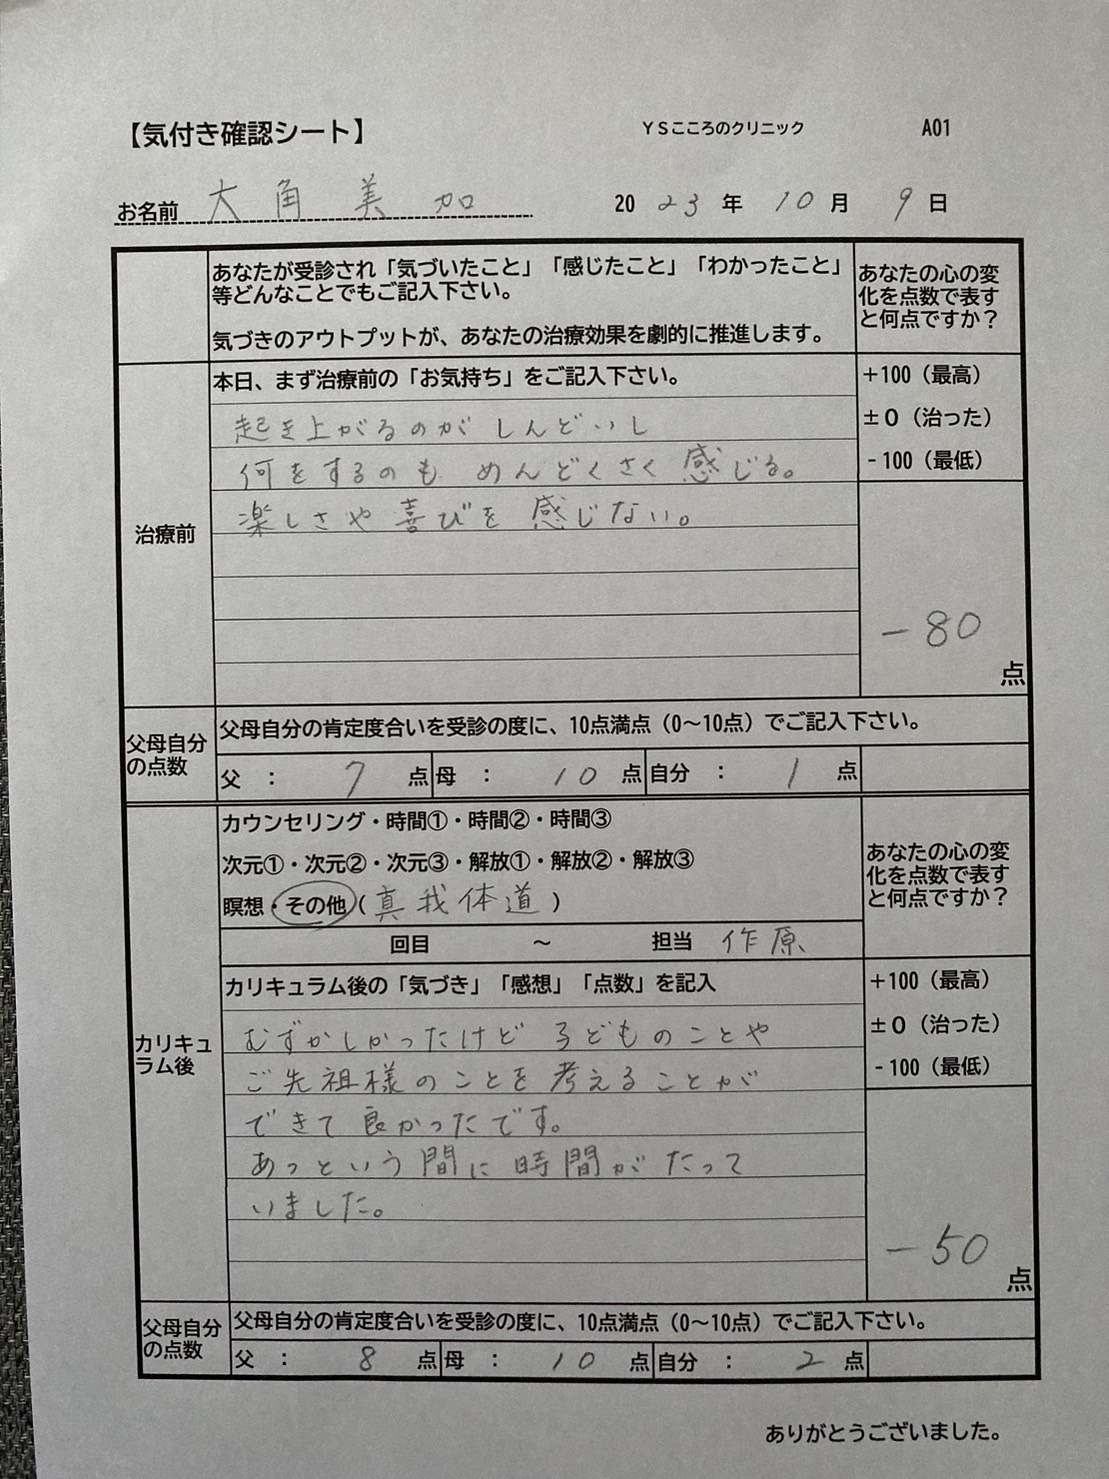 【気付き確認シート】 YSこころのクリニック A01
お名前 大角美加 2023年10月9日
あなたが受診され「気づいたこと」「感じたこと」「わかったこと」
等どんなことでもご記入下さい。
気づきのアウトプットが、あなたの治療効果を劇的に推進します。
あなたの心の変
化を点数で表す
と何点ですか?
治療前
本日、まず治療前の「お気持ち」をご記入下さい。
起き上がるのがしんどいし
何をするのもめんどくさく感じる。
楽しさや喜びを感じない。
+100(最高)
±0(治った)
-100(最低)
-80
点
父母自分
の点数
父母自分の肯定度合いを受診の度に、10点満点(0～10点)でご記入下さい。
父 : 7 点 母 : 10 点 自分 : 1 点
カリキュ
ラム後
カウンセリング・時間①・時間②・時間③
次元①・次元②・次元③・解放①・解放②・解放③
瞑想・その他(真我体道)
回目 ～ 担当 作原
あなたの心の変
化を点数で表す
と何点ですか?
カリキュラム後の「気づき」「感想」「点数」を記入
むずかしかったけど 子どものことや
ご先祖様のことを考えることが
できて良かったです。
あっという間に時間がたって
いました。
+100(最高)
±0(治った)
-100(最低)
-50
点
父母自分
の点数
父母自分の肯定度合いを受診の度に、10点満点(0～10点)でご記入下さい。
父 : 8 点 母 : 10 点 自分 : 2 点
ありがとうございました。